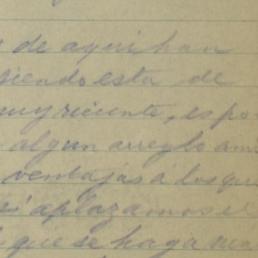 de aqui han
siendo esta de
muy riciente, es po
algun arreglo ami
ventajas á los que
si aplazamos el
que se haga má